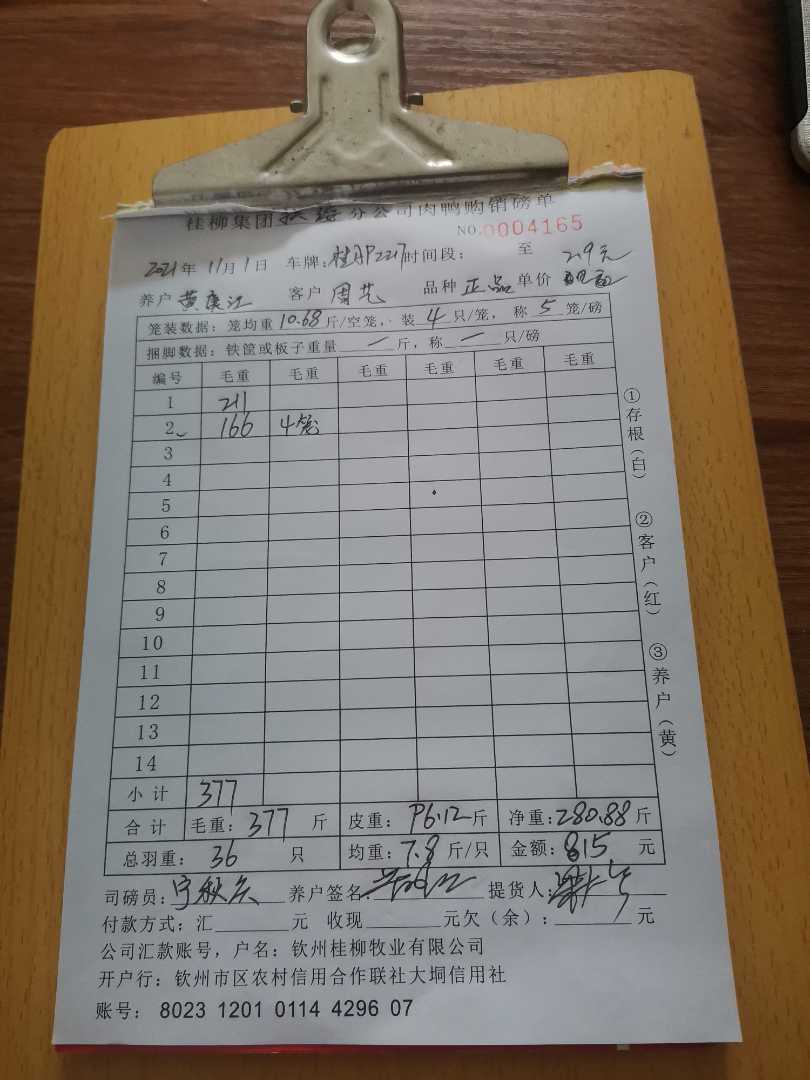 桂柳集团扶绥分公司肉鸭购销磅单
NO.0004165
2021年11月1日 车牌: 时间段: 至 2.9元
养户 黄庚江 客户 周艺 品种 正品 单价
笼装数据: 笼均重10.68斤/空笼, 装4只/笼, 称5笼/磅
捆脚数据: 铁筐或板子重量 一 斤, 称 一 只/磅
编号 毛重 毛重 毛重 毛重 毛重 毛重
1 211
2 166 4笼
3
4
5
6
7
8
9
10
11
12
13
14
小计 377
合计 毛重: 377 斤 皮重: 96.12斤 净重: 280.88斤
总羽重: 36 只 均重: 7.8斤/只 金额: 815 元
司磅员: 养户签名: 提货人:
付款方式: 汇 元 收现 元欠(余): 元
公司汇款账号, 户名: 钦州桂柳牧业有限公司
开户行: 钦州市区农村信用合作联社大垌信用社
账号: 8023 1201 0114 4296 07
①存根(白)
②客户(红)
③养户(黄)